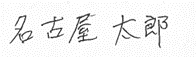 名古屋 太郎